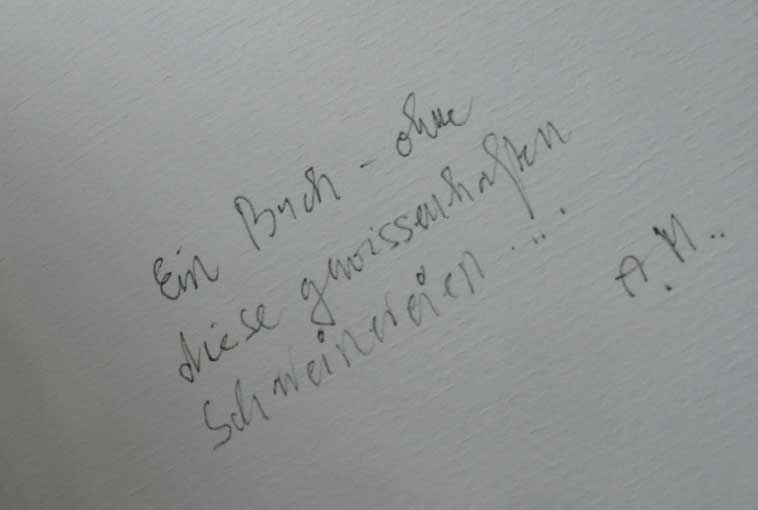 Ein Buch - ohne
diese gewissenhaften
Schweinereien ....
A. M..